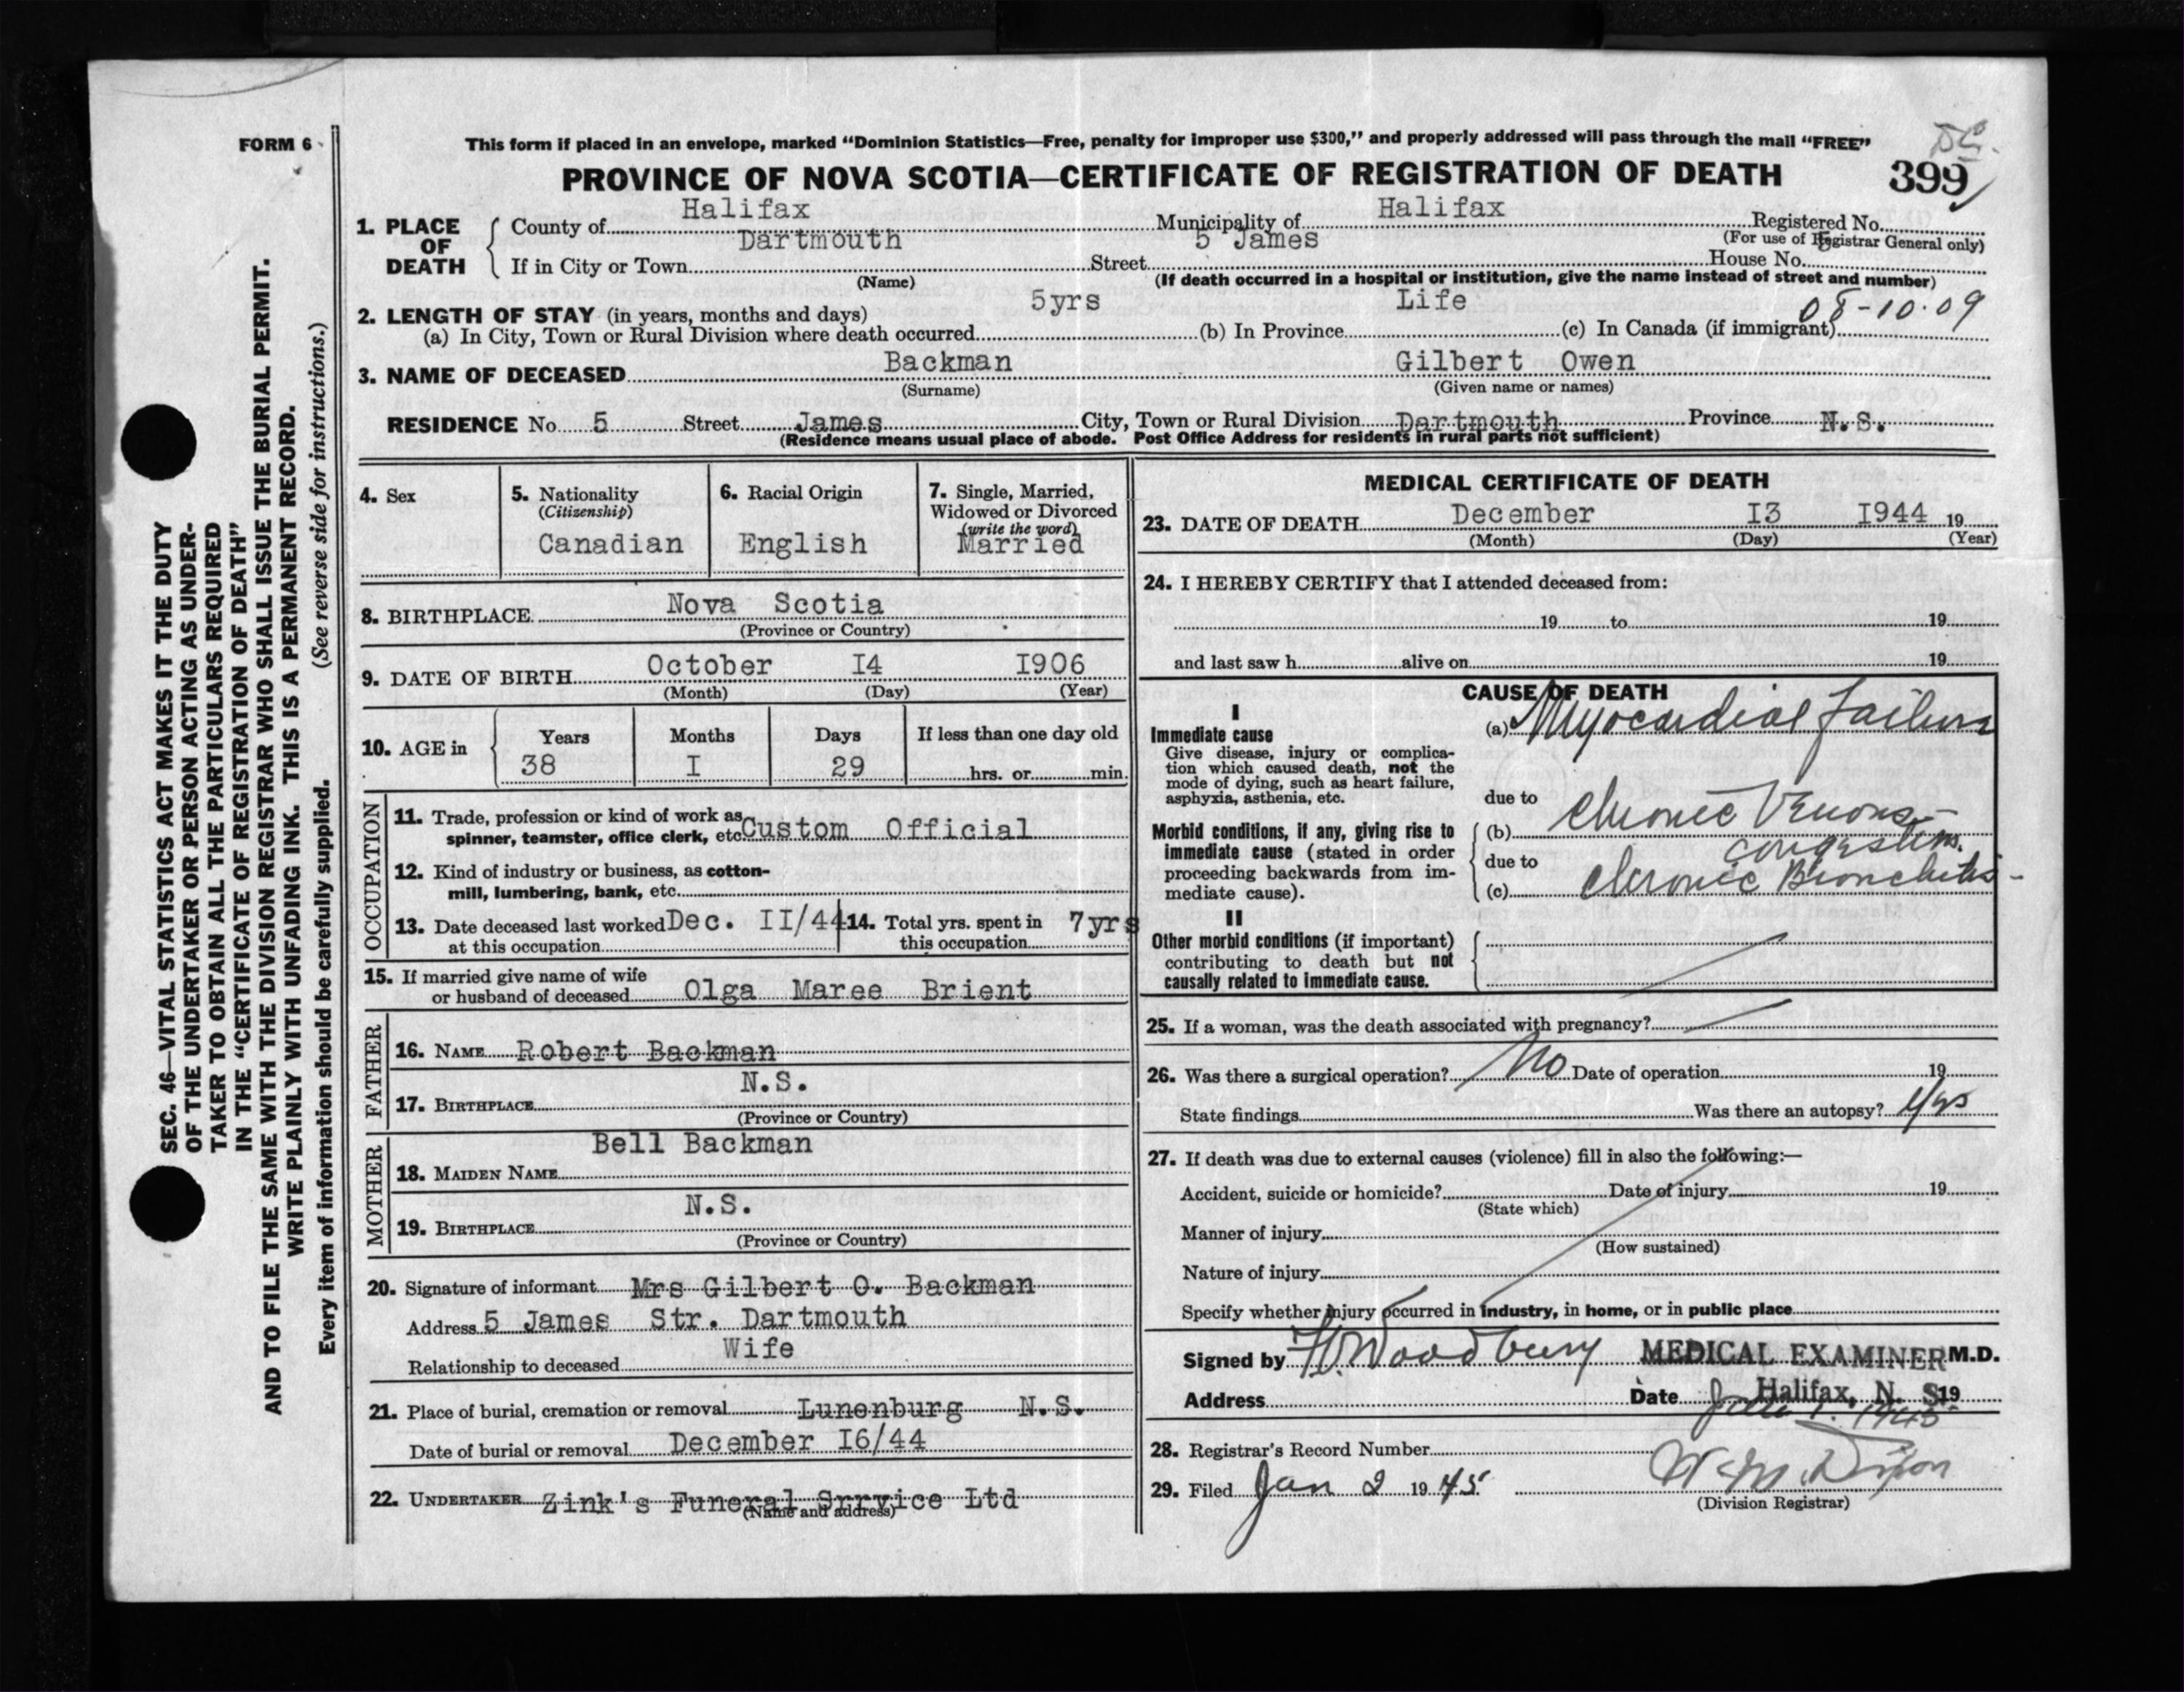 FORM 6
This form if placed in an envelope, marked “Dominion Statistics—Free, penalty for improper use $300,” and properly addressed will pass through the mail “FREE”
PROVINCE OF NOVA SCOTIA—CERTIFICATE OF REGISTRATION OF DEATH 399
1. PLACE OF DEATH
County of Halifax Municipality of Halifax Registered No.
(For use of Registrar General only)
If in City or Town Dartmouth Street 5 James House No.
(Name) (If death occurred in a hospital or institution, give the name instead of street and number)
2. LENGTH OF STAY (in years, months and days)
(a) In City, Town or Rural Division where death occurred 5yrs (b) In Province Life (c) In Canada (if immigrant) 08-10-09
3. NAME OF DECEASED Backman Gilbert Owen
(Surname) (Given name or names)
RESIDENCE No 5 Street James City, Town or Rural Division Dartmouth Province N.S.
(Residence means usual place of abode. Post Office Address for residents in rural parts not sufficient)
4. Sex
5. Nationality
(Citizenship)
Canadian
6. Racial Origin
English
7. Single, Married,
Widowed or Divorced
(write the word)
Married
8. BIRTHPLACE Nova Scotia
(Province or Country)
9. DATE OF BIRTH October I4 I906
(Month) (Day) (Year)
10. AGE in Years Months Days If less than one day old
38 I 29 hrs. or min.
OCCUPATION
11. Trade, profession or kind of work as
spinner, teamster, office clerk, etc Custom Official
12. Kind of industry or business, as cotton-
mill, lumbering, bank, etc.
13. Date deceased last worked Dec. II/44
at this occupation
14. Total yrs. spent in 7yrs
this occupation
15. If married give name of wife
or husband of deceased Olga Maree Brient
FATHER
16. NAME Robert Backman
17. BIRTHPLACE N.S.
(Province or Country)
MOTHER
18. MAIDEN NAME Bell Backman
19. BIRTHPLACE N.S.
(Province or Country)
20. Signature of informant Mrs Gilbert O. Backman
Address 5 James Str. Dartmouth
Relationship to deceased Wife
21. Place of burial, cremation or removal Lunenburg N.S.
Date of burial or removal December I6/44
22. UNDERTAKER Zink's Funeral Srrvice Ltd
(Name and address)
MEDICAL CERTIFICATE OF DEATH
23. DATE OF DEATH December I3 I944 19
(Month) (Day) (Year)
24. I HEREBY CERTIFY that I attended deceased from:
19 to 19
and last saw h alive on 19
CAUSE OF DEATH
I
Immediate cause
Give disease, injury or complica-
tion which caused death, not the
mode of dying, such as heart failure,
asphyxia, asthenia, etc.
(a) Myocardial Failure
due to
Morbid conditions, if any, giving rise to
immediate cause (stated in order
proceeding backwards from im-
mediate cause).
(b) Chronic Venous
congestion.
due to
(c) Chronic Bronchitis
II
Other morbid conditions (if important)
contributing to death but not
causally related to immediate cause.
25. If a woman, was the death associated with pregnancy?
26. Was there a surgical operation? No Date of operation 19
State findings Was there an autopsy? Yes
27. If death was due to external causes (violence) fill in also the following:—
Accident, suicide or homicide? Date of injury 19
(State which)
Manner of injury
(How sustained)
Nature of injury
Specify whether injury occurred in industry, in home, or in public place
Signed by Woodbury MEDICAL EXAMINER M.D.
Address Date Halifax, N. S. 19
1. 1945
28. Registrar's Record Number
29. Filed Jan 2 1945 W. M. Dixon
(Division Registrar)
SEC. 46—VITAL STATISTICS ACT MAKES IT THE DUTY
OF THE UNDERTAKER OR PERSON ACTING AS UNDER-
TAKER TO OBTAIN ALL THE PARTICULARS REQUIRED
IN THE “CERTIFICATE OF REGISTRATION OF DEATH”
AND TO FILE THE SAME WITH THE DIVISION REGISTRAR WHO SHALL ISSUE THE BURIAL PERMIT.
WRITE PLAINLY WITH UNFADING INK. THIS IS A PERMANENT RECORD.
Every item of information should be carefully supplied. (See reverse side for instructions.)